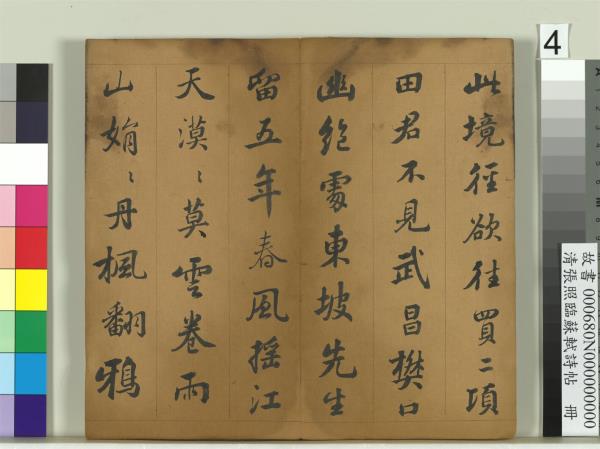 此境徑欲往買二項
田君不見武昌樊口
幽絕處東坡先生
留五年春風搖江
天漠〻莫雲卷雨
山娟〻丹楓翻鴉
4
故書 000680N000000000
清張照臨蘇軾詩帖 冊